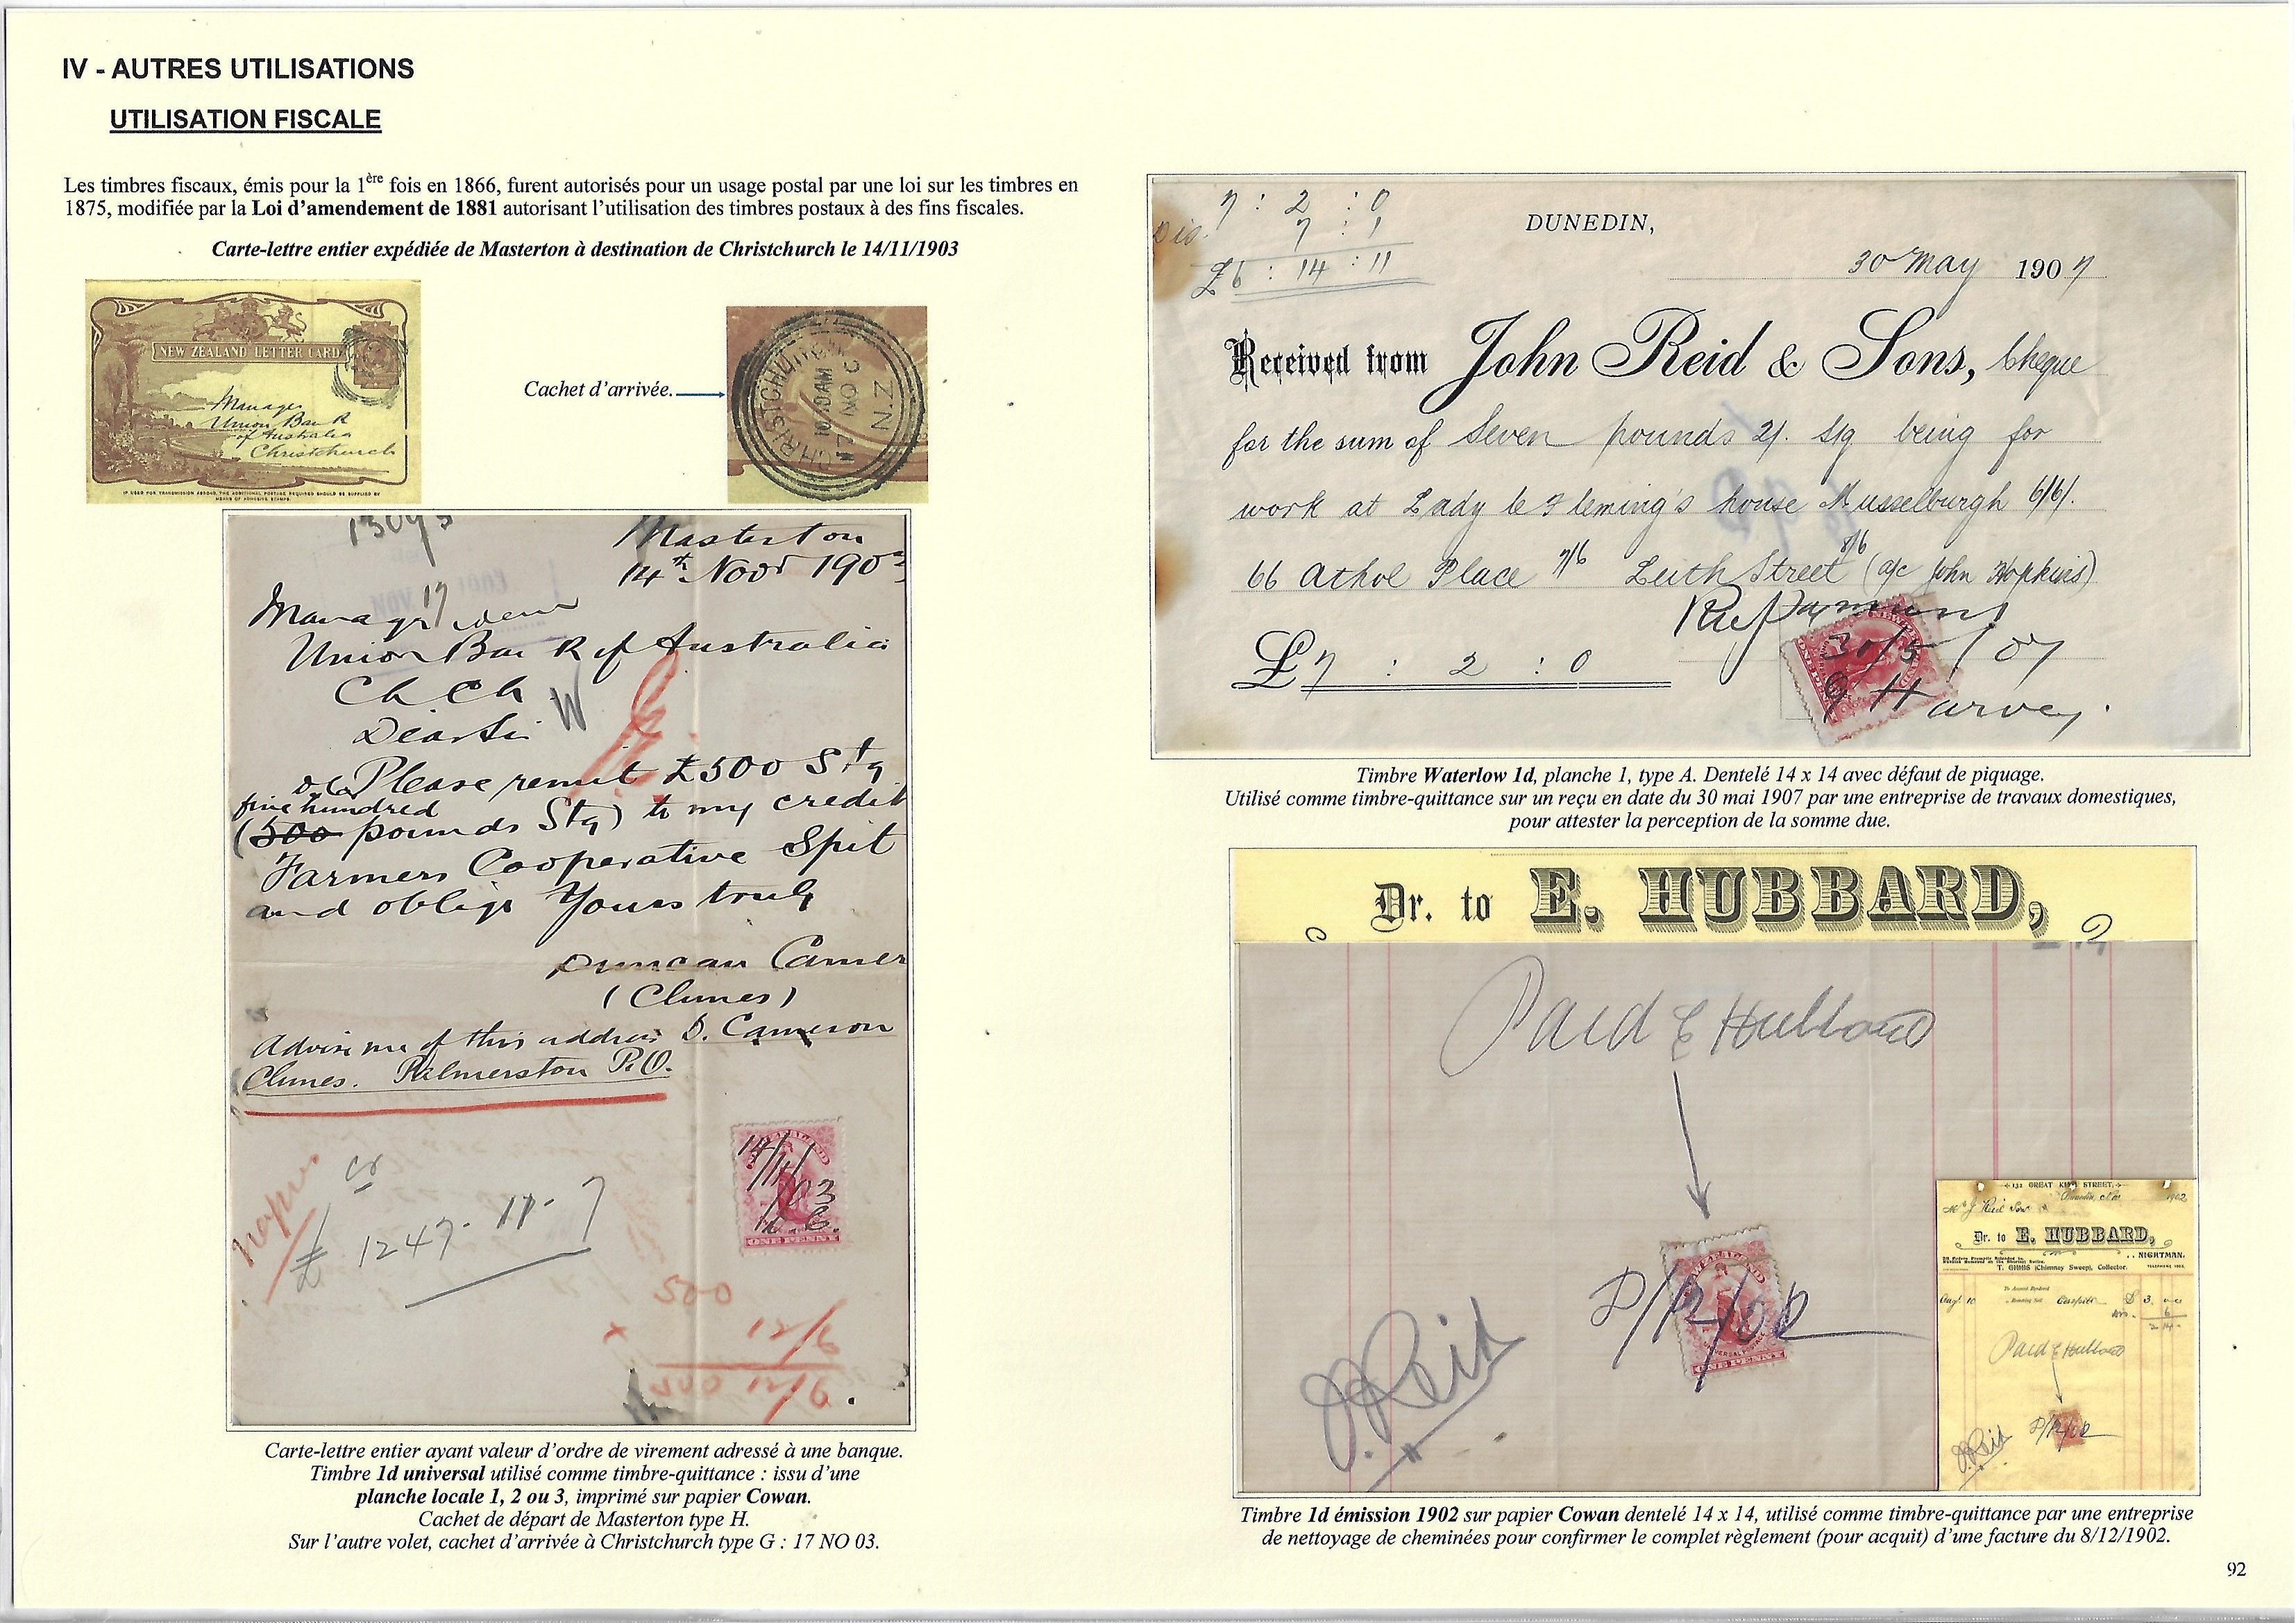 IV - AUTRES UTILISATIONS
UTILISATION FISCALE
Les timbres fiscaux, émis pour la 1ère fois en 1866, furent autorisés pour un usage postal par une loi sur les timbres en
1875, modifiée par la Loi d'amendement de 1881 autorisant l'utilisation des timbres postaux à des fins fiscales.
Carte-lettre entier expédiée de Masterton à destination de Christchurch le 14/11/1903
NEW ZEALAND LETTER CARD
Manager
Union Bank
of Australia
Christchurch
IF USED FOR TRANSMISSION ABROAD, THE ADDITIONAL POSTAGE REQUIRED SHOULD BE SUPPLIED BY
MEANS OF ADHESIVE STAMPS.
Cachet d'arrivée.
CHRISTCHURCH
N.Z
Masterton
14th Novr 1903
Manager
Union Bank of Australia
Ch Ch
Dear Sir
Please remit £500 Stg
five hundred
(500 pounds Stg) to my credit
Farmers Cooperative Spit
and oblige Yours truly
Duncan Camer
(Clunes)
Advise me of this address D. Cameron
Clunes. Palmerston P.O.
14/11/03
D.C.
ONE PENNY
£ 1247. 11. 7
500
12/6
500 12/6
Carte-lettre entier ayant valeur d'ordre de virement adressé à une banque.
Timbre 1d universal utilisé comme timbre-quittance : issu d'une
planche locale 1, 2 ou 3, imprimé sur papier Cowan.
Cachet de départ de Masterton type H.
Sur l'autre volet, cachet d'arrivée à Christchurch type G : 17 NO 03.
7 : 2 : 0
Dis. 7 : 1
£6 : 14 : 11
DUNEDIN,
30 May 1907
Received from John Reid & Sons, Cheque
for the sum of Seven pounds 2/. Stg being for
work at Lady le Fleming's house Musselburgh 6/6/.
66 Athol Place 7/6 Leith Street 8/6 (a/c John Hopkins)
£7 : 2 : 0
30/5/07
G Harvey.
Timbre Waterlow 1d, planche 1, type A. Dentelé 14 x 14 avec défaut de piquage.
Utilisé comme timbre-quittance sur un reçu en date du 30 mai 1907 par une entreprise de travaux domestiques,
pour attester la perception de la somme due.
Dr. to E. HUBBARD,
Paid E Hubbard
ONE PENNY
J. Reid
132 GREAT KING STREET,
1902
Dr. to E. HUBBARD,
NIGHTMAN.
T. GIBBS (Chimney Sweep), Collector.
Paid E Hubbard
J. Reid
Timbre 1d émission 1902 sur papier Cowan dentelé 14 x 14, utilisé comme timbre-quittance par une entreprise
de nettoyage de cheminées pour confirmer le complet règlement (pour acquit) d'une facture du 8/12/1902.
92